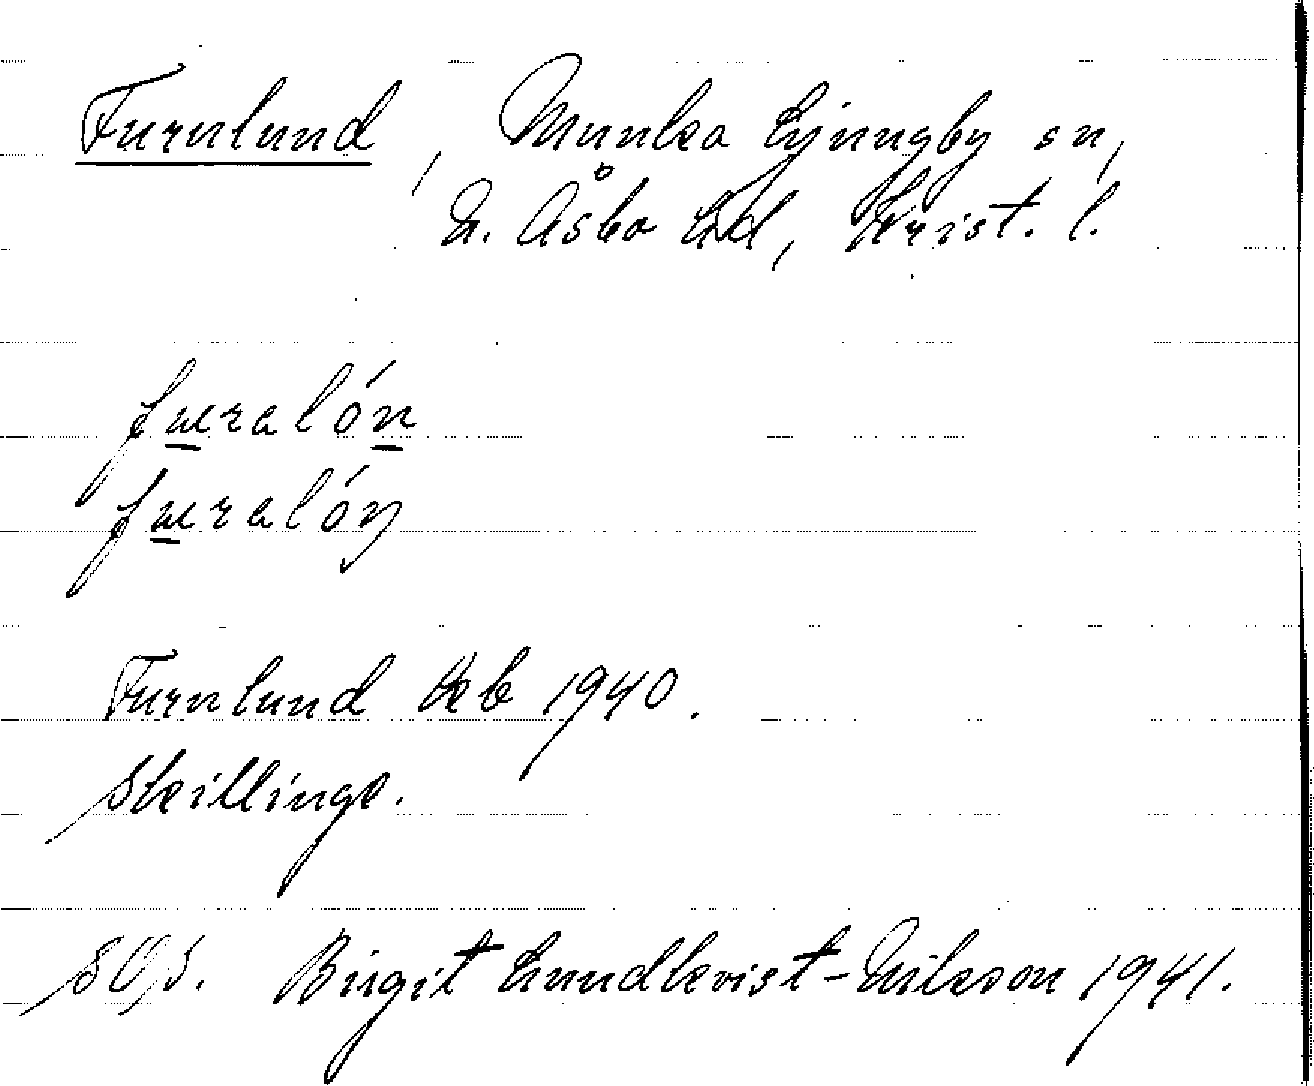 Furulund, Munka Ljungby sn,
N. Åsbo hd, Krist. l.
furalón
furalóŋ
Furulund Ek 1940.
Skillinge.
Birgit Lundkvist-Nilsson 1941.